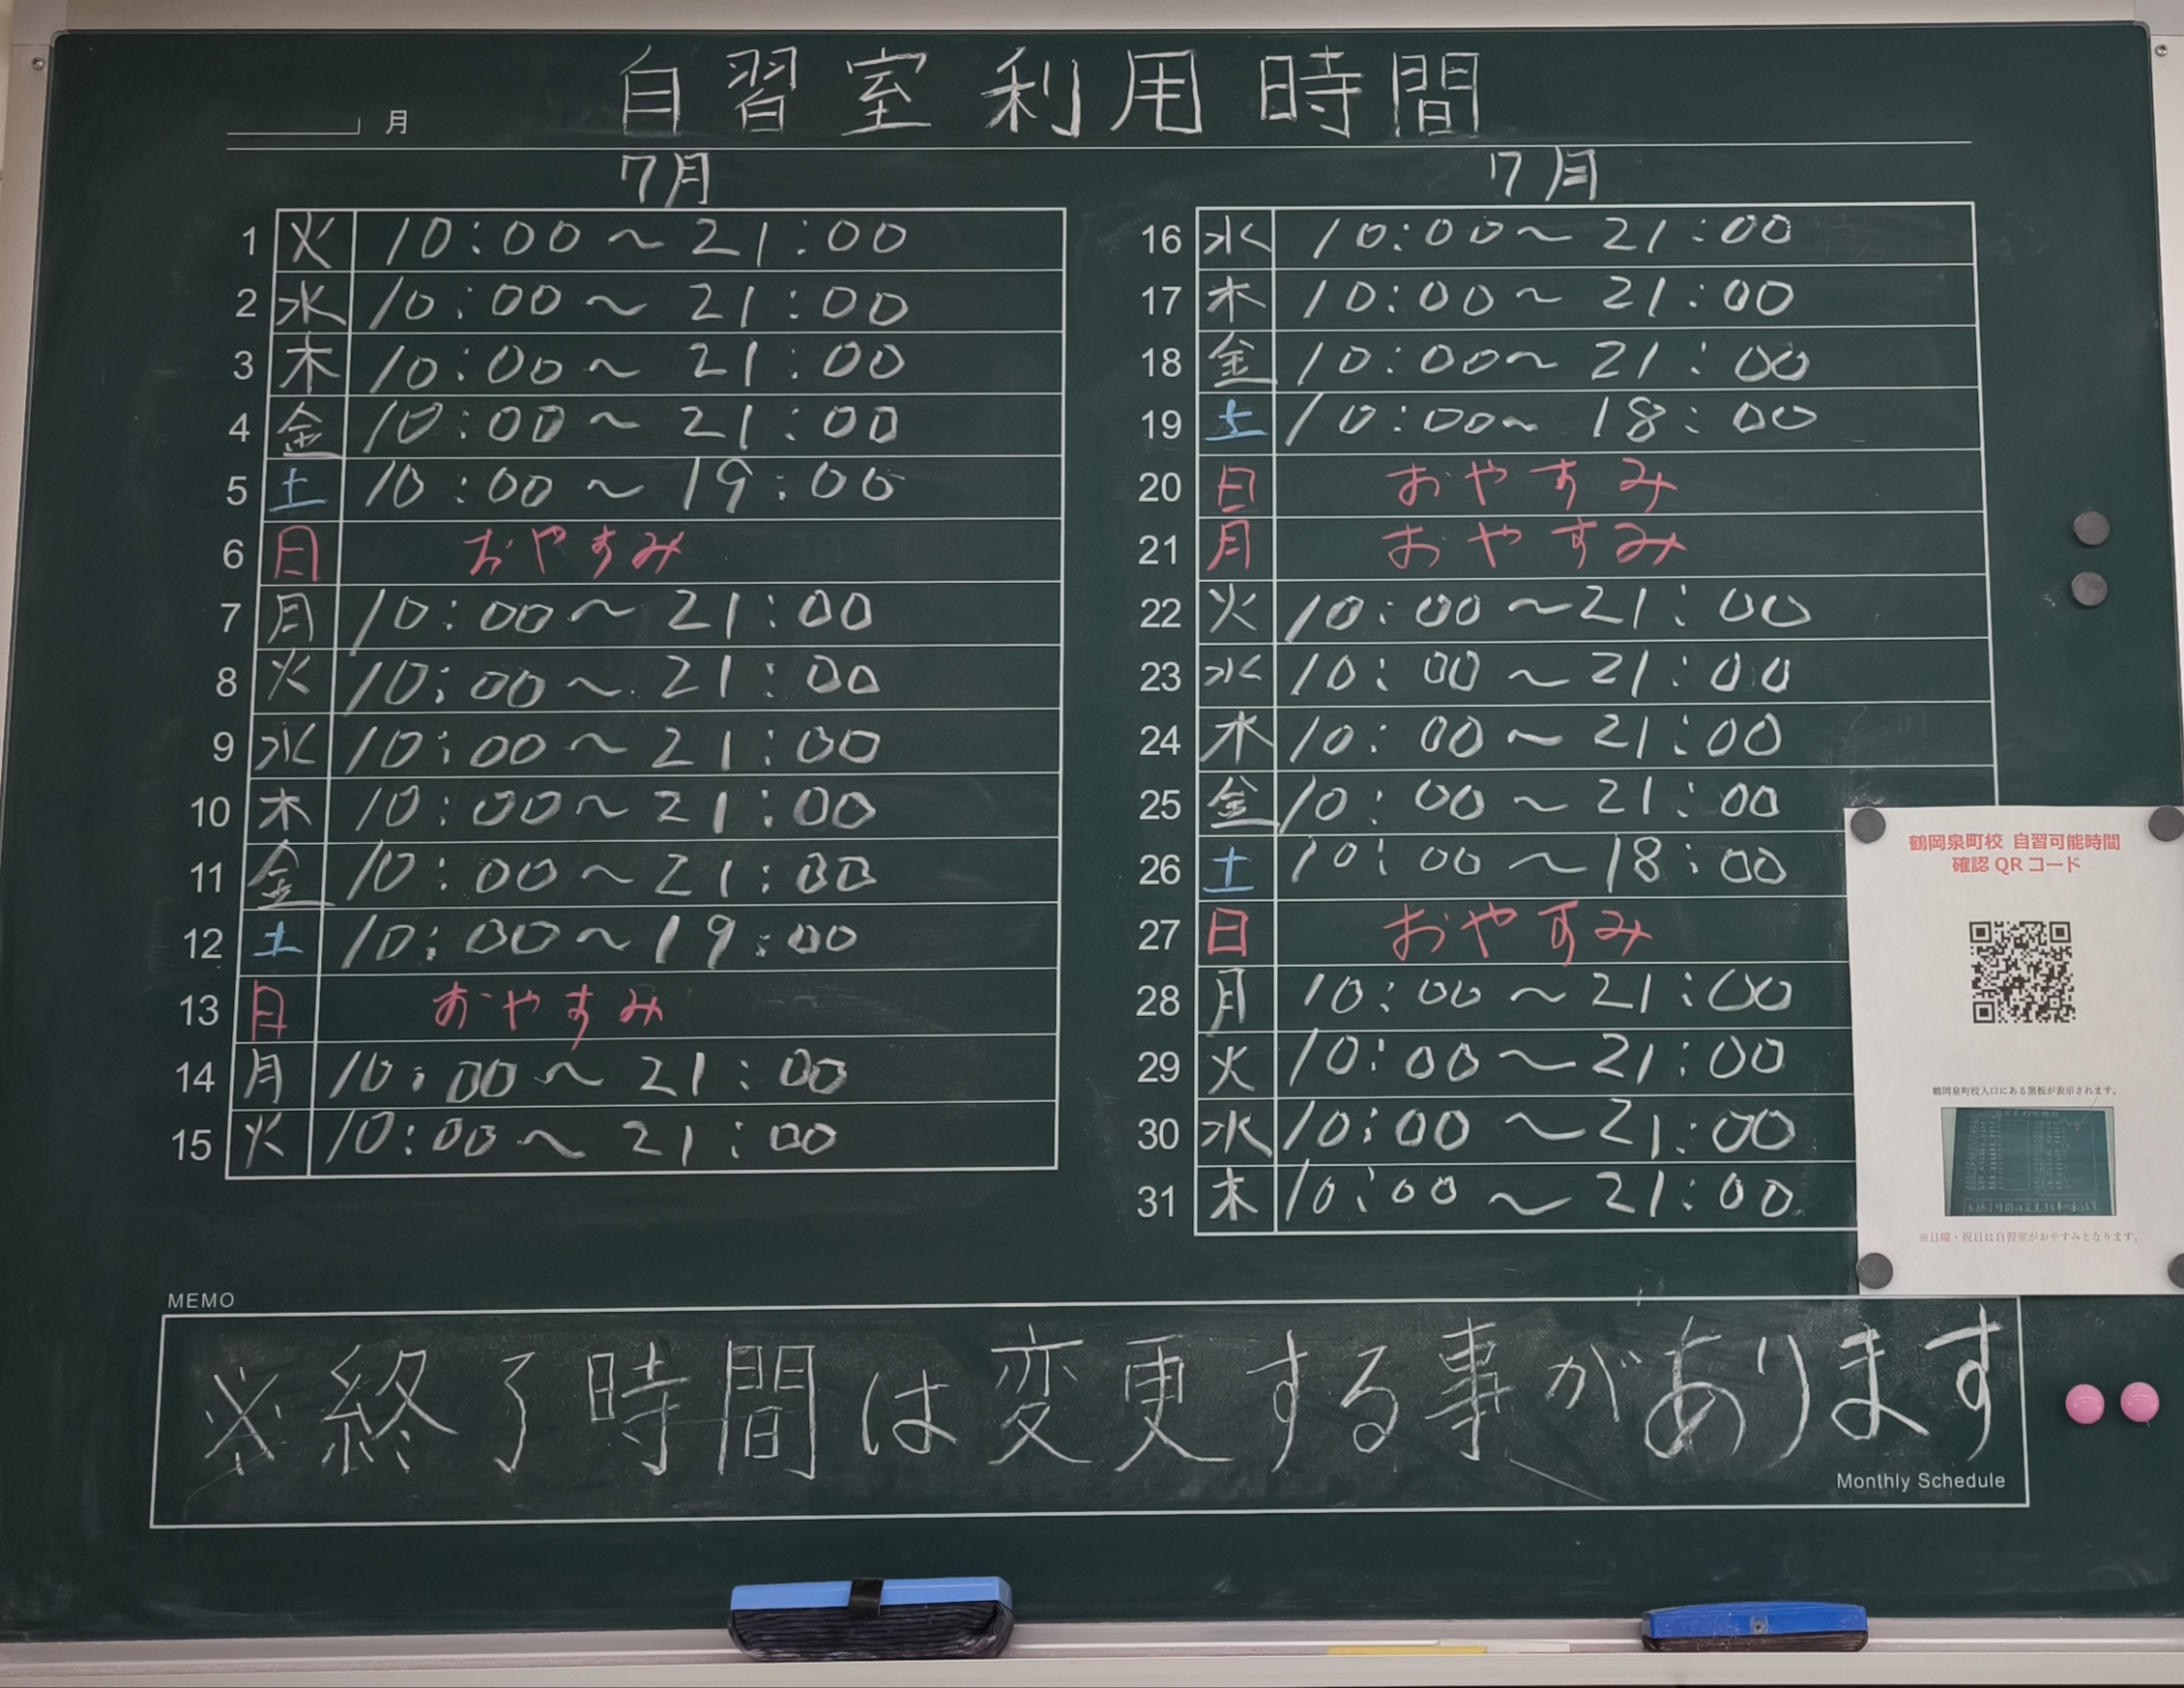 自習室利用時間
月
7月
1 火 10:00～21:00
2 水 10:00～21:00
3 木 10:00～21:00
4 金 10:00～21:00
5 土 10:00～19:00
6 日 おやすみ
7 月 10:00～21:00
8 火 10:00～21:00
9 水 10:00～21:00
10 木 10:00～21:00
11 金 10:00～21:00
12 土 10:00～19:00
13 日 おやすみ
14 月 10:00～21:00
15 火 10:00～21:00
7月
16 水 10:00～21:00
17 木 10:00～21:00
18 金 10:00～21:00
19 土 10:00～18:00
20 日 おやすみ
21 月 おやすみ
22 火 10:00～21:00
23 水 10:00～21:00
24 木 10:00～21:00
25 金 10:00～21:00
26 土 10:00～18:00
27 日 おやすみ
28 月 10:00～21:00
29 火 10:00～21:00
30 水 10:00～21:00
31 木 10:00～21:00
鶴岡泉町校 自習可能時間
確認QRコード
鶴岡泉町校入口にある黒板が表示されます。
※日曜・祝日は自習室がおやすみとなります。
MEMO
※終了時間は変更する事があります
Monthly Schedule